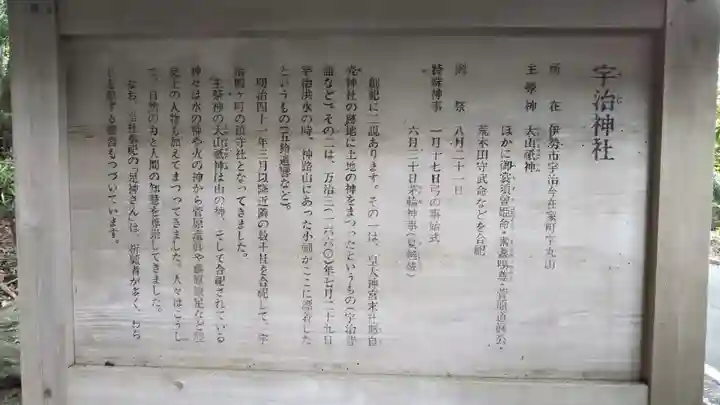 宇治神社
所在 伊勢市宇治今在家町字丸山
主祭神 大山祇神
ほかに 素盞嗚尊・菅原道眞公・
荒木田守武命などを合祀
例祭 八月二十一日
特殊神事 一月十七日弓の事始式
六月三十日茅輪神事(夏越祓)
創祀に二説あります。その一は、皇大神宮末社
神社の跡地に土地の神をまつったというもの(宇治
など)。その二は、万治三(一六六〇)年七月二十九日
宇治洪水の時、神路山にあった小祠がここに漂着した
というもの(五鈴遺響など)。
明治四十一年三月以降近隣の数十社を合祀して、宇
治四ヶ町の鎮守社となってきました。
主祭神の大山祇神は山の神、そして合祀されている
神々は水の神や火の神から菅原道眞や など歴
史上の人物も加えてまつってきました。人々はこうし
て、自然の力と人間の知恵を尊崇してきました。
なお、当社奉祀の「足神さん」は、祈願者が多く、わら
じを する もつづいています。